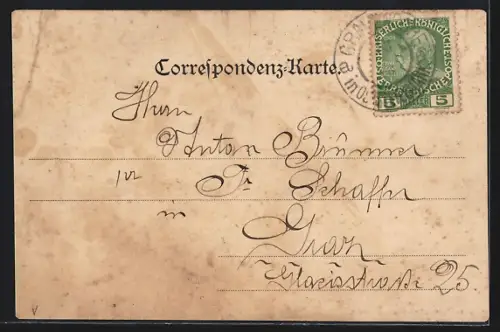 Correspondenz-Karte.
KAISERLICH-KÖNIGLICHE ÖSTERREICHISCHE POST
5 5
Herrn
Anton Brunner
pr Fr Schaffer
in
Graz
Glacisstraße 25.
v